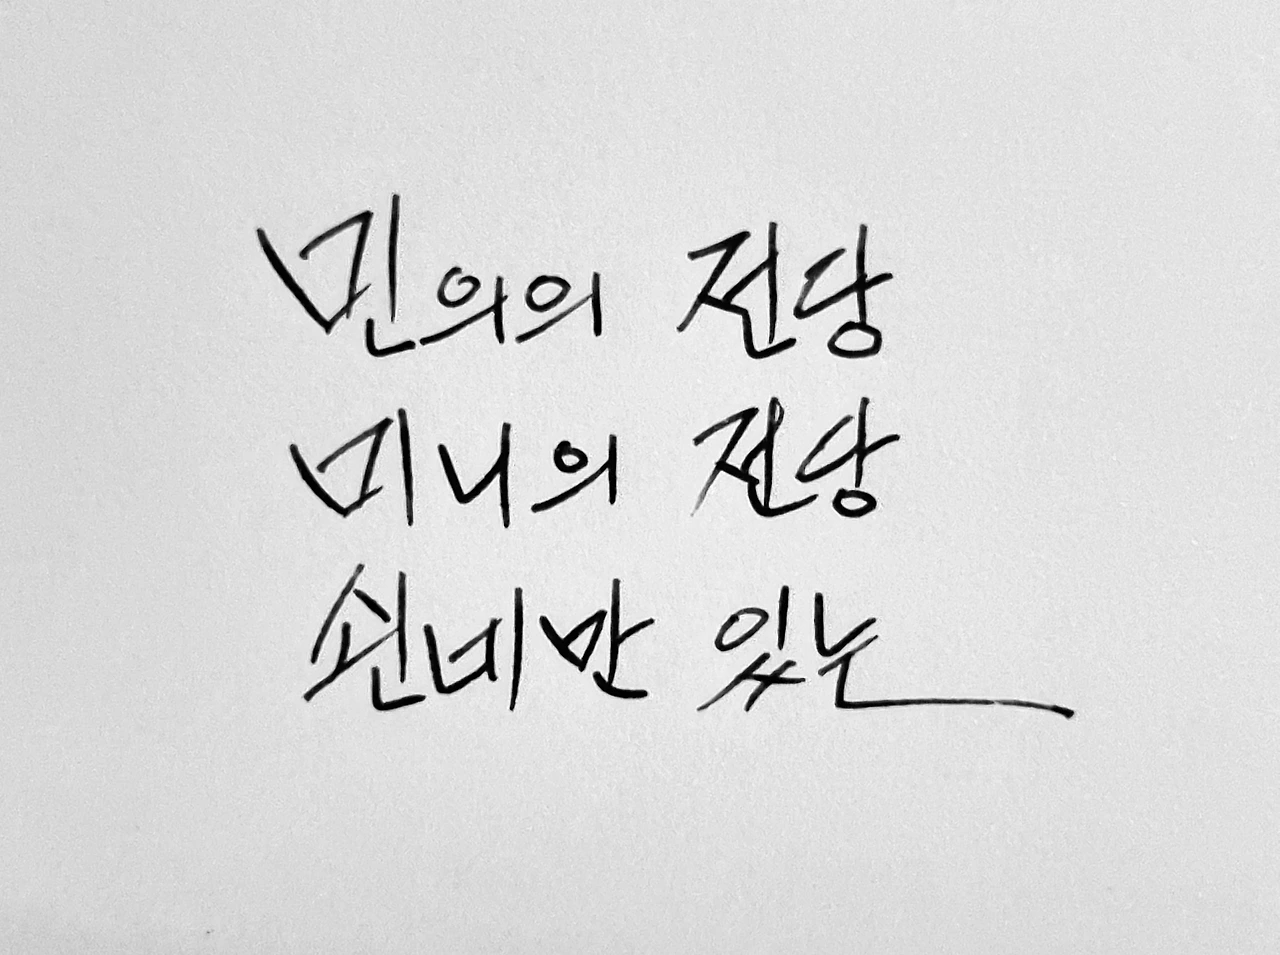 민의의 전당
미니의 전당
쇤네만 있는